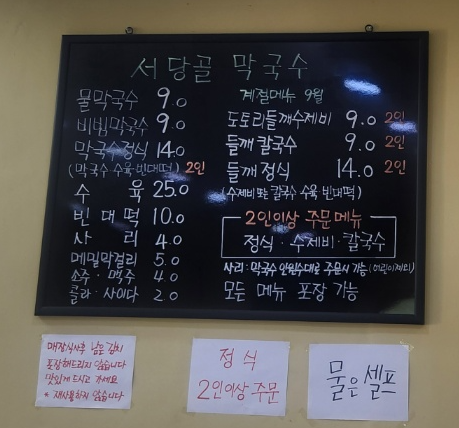 서당골 막국수
물막국수 9.0
비빔막국수 9.0
막국수정식 14.0
(막국수 수육 빈대떡) 2인
수육 25.0
빈대떡 10.0
사리 4.0
메밀막걸리 5.0
소주·맥주 4.0
콜라·사이다 2.0
계절메뉴 9월
도토리들깨수제비 9.0 2인
들깨칼국수 9.0 2인
들깨정식 14.0 2인
(수제비 또는 칼국수 수육 빈대떡)
2인이상 주문메뉴
정식·수제비·칼국수
사리: 막국수 인원수대로 주문시 가능 (어린이제외)
모든 메뉴 포장 가능
매장식사후 남은 김치
포장해드리지 않습니다
맛있게 드시고 가세요
* 재사용하지 않습니다
정식
2인이상 주문
물은 셀프